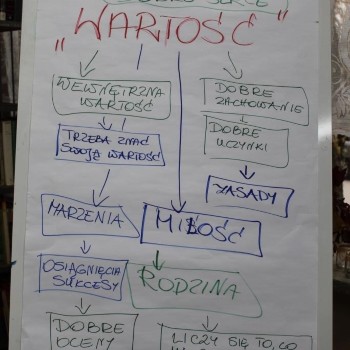 „WARTOŚĆ"
WEWNĘTRZNA
WARTOŚĆ
DOBRE
ZACHOWANIE
TRZEBA ZNAĆ
SWOJĄ WARTOŚĆ
DOBRE
UCZYNKI
ZASADY
MARZENIA
MIŁOŚĆ
OSIĄGNIĘCIA
SUKCESY
RODZINA
DOBRE
OCENY
LICZY SIĘ TO, CO